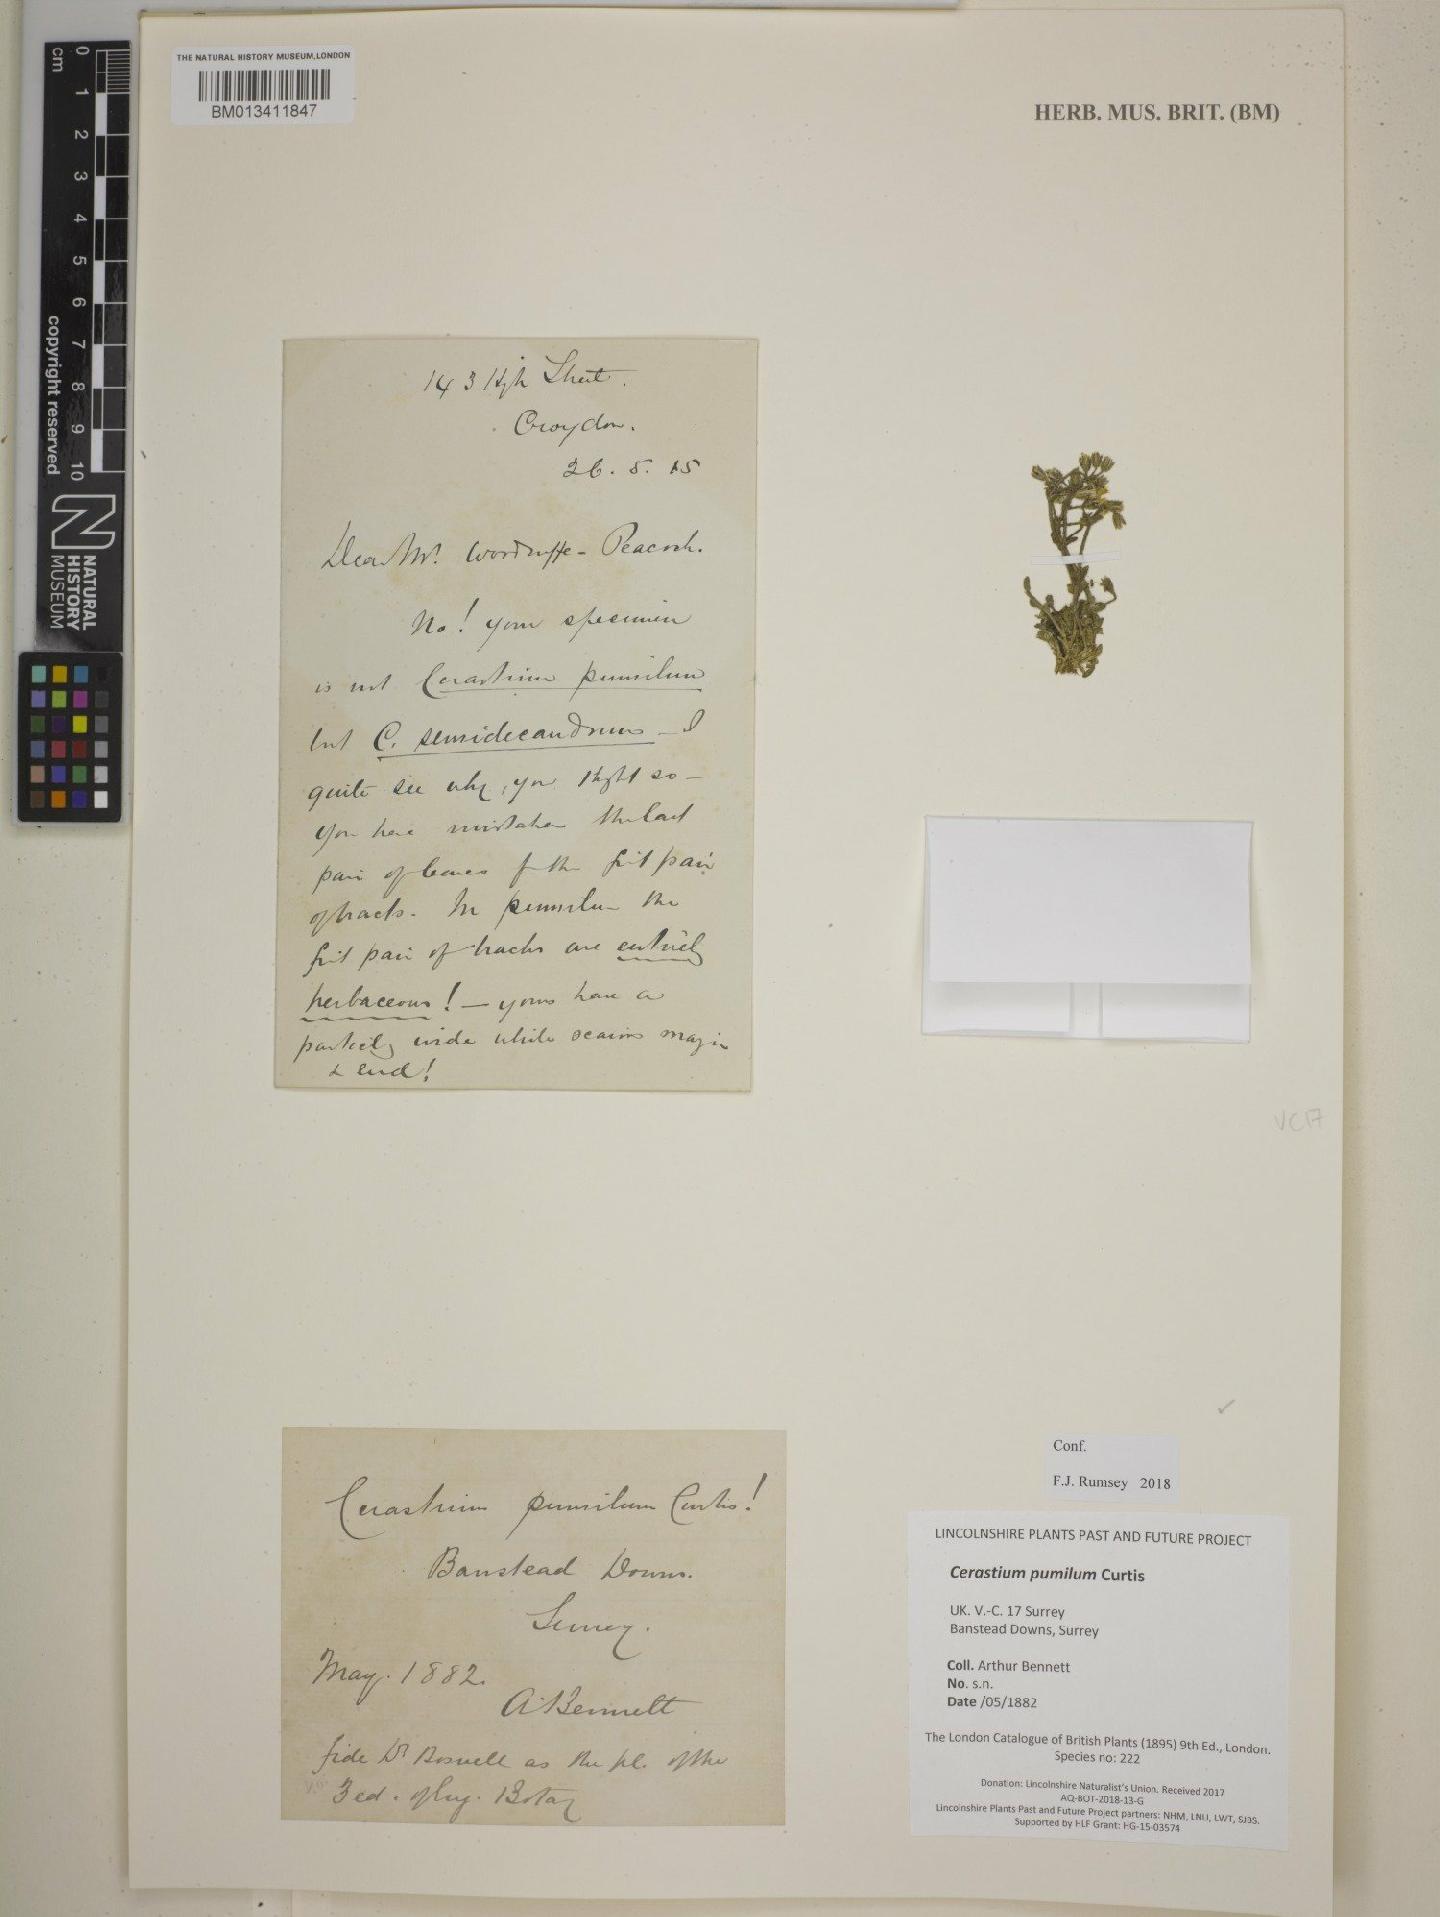 THE NATURAL HISTORY MUSEUM, LONDON
BM013411847
HERB. MUS. BRIT. (BM)
cm
0
1
2
3
4
5
6
7
8
9
10
copyright reserved
NATURAL
HISTORY
MUSEUM
143 High Street.
Croydon.
26. 5. 15
Dear Mr. Woodruffe-Peacock.
No! your specimen
is not Cerastium pumilum
but C. semidecandrum - I
quite see why, you thght so -
you have mistaken the last
pair of leaves f the first pair
of bracts. In pumilum the
first pair of bracts are entirely
herbaceous! - yours have a
partiely wide white scarious margin
& end!
VC17
Cerastrium pumilum Curtis!
Banstead Downs.
Surrey.
May. 1882.
A. Bennett
fide Dr Boswell as the pl. of the
3 ed. of Eng. Botay
Conf.
F.J. Rumsey 2018
LINCOLNSHIRE PLANTS PAST AND FUTURE PROJECT
Cerastium pumilum Curtis
UK. V.-C. 17 Surrey
Banstead Downs, Surrey
Coll. Arthur Bennett
No. s.n.
Date /05/1882
The London Catalogue of British Plants (1895) 9th Ed., London.
Species no: 222
Donation: Lincolnshire Naturalist's Union. Received 2017
AQ-BOT-2018-13-G
Lincolnshire Plants Past and Future Project partners: NHM, LNU, LWT, SJBS.
Supported by HLF Grant: HG-15-03574